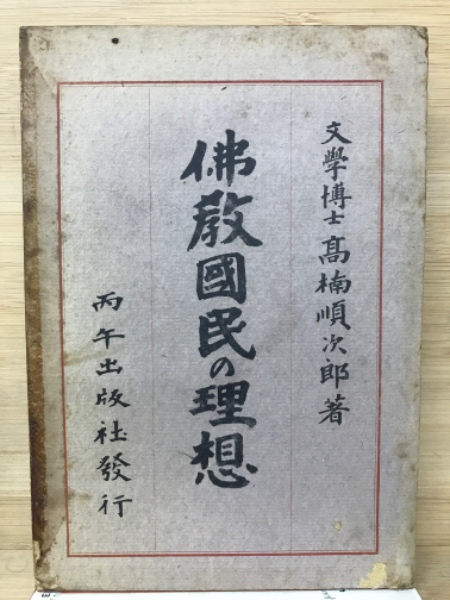 文學博士髙楠順次郎著
佛教國民の理想
丙午出版社發行